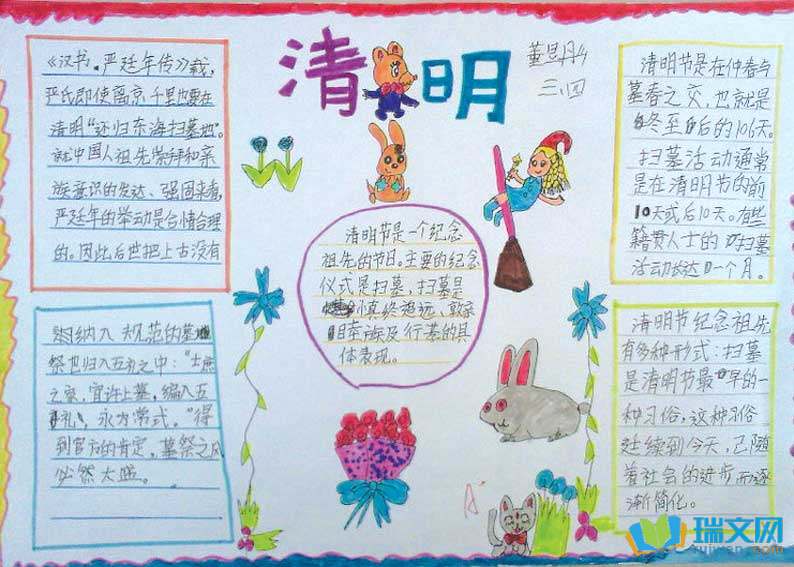 清明
董昱彤
三、四
《汉书·严延年传》载,
严氏即使离京千里也要在
清明“还归东海扫墓地”。
就中国人祖先崇拜和亲
族意识的发达、强固来看,
严延年的举动是合情合理
的。因此后世把上古没有
纳入规范的墓
祭也归入五礼之中:“士庶
之家,宜许上墓,编入五
礼,永为常式。”得
到官方的肯定,墓祭之风
必然大盛。
清明节是一个纪念
祖先的节日。主要的纪念
仪式是扫墓,扫墓是
慎终追远、敦亲
睦族及行孝的具
体表现。
清明节是在仲春与
暮春之交,也就是
冬至后的106天。
扫墓活动通常
是在清明节的前
10天或后10天。有些
籍贯人士的扫墓
活动长达一个月。
清明节纪念祖先
有多种形式:扫墓
是清明节最早的一
种习俗,这种习俗
延续到今天,已随
着社会的进步而逐
渐简化。
瑞文网